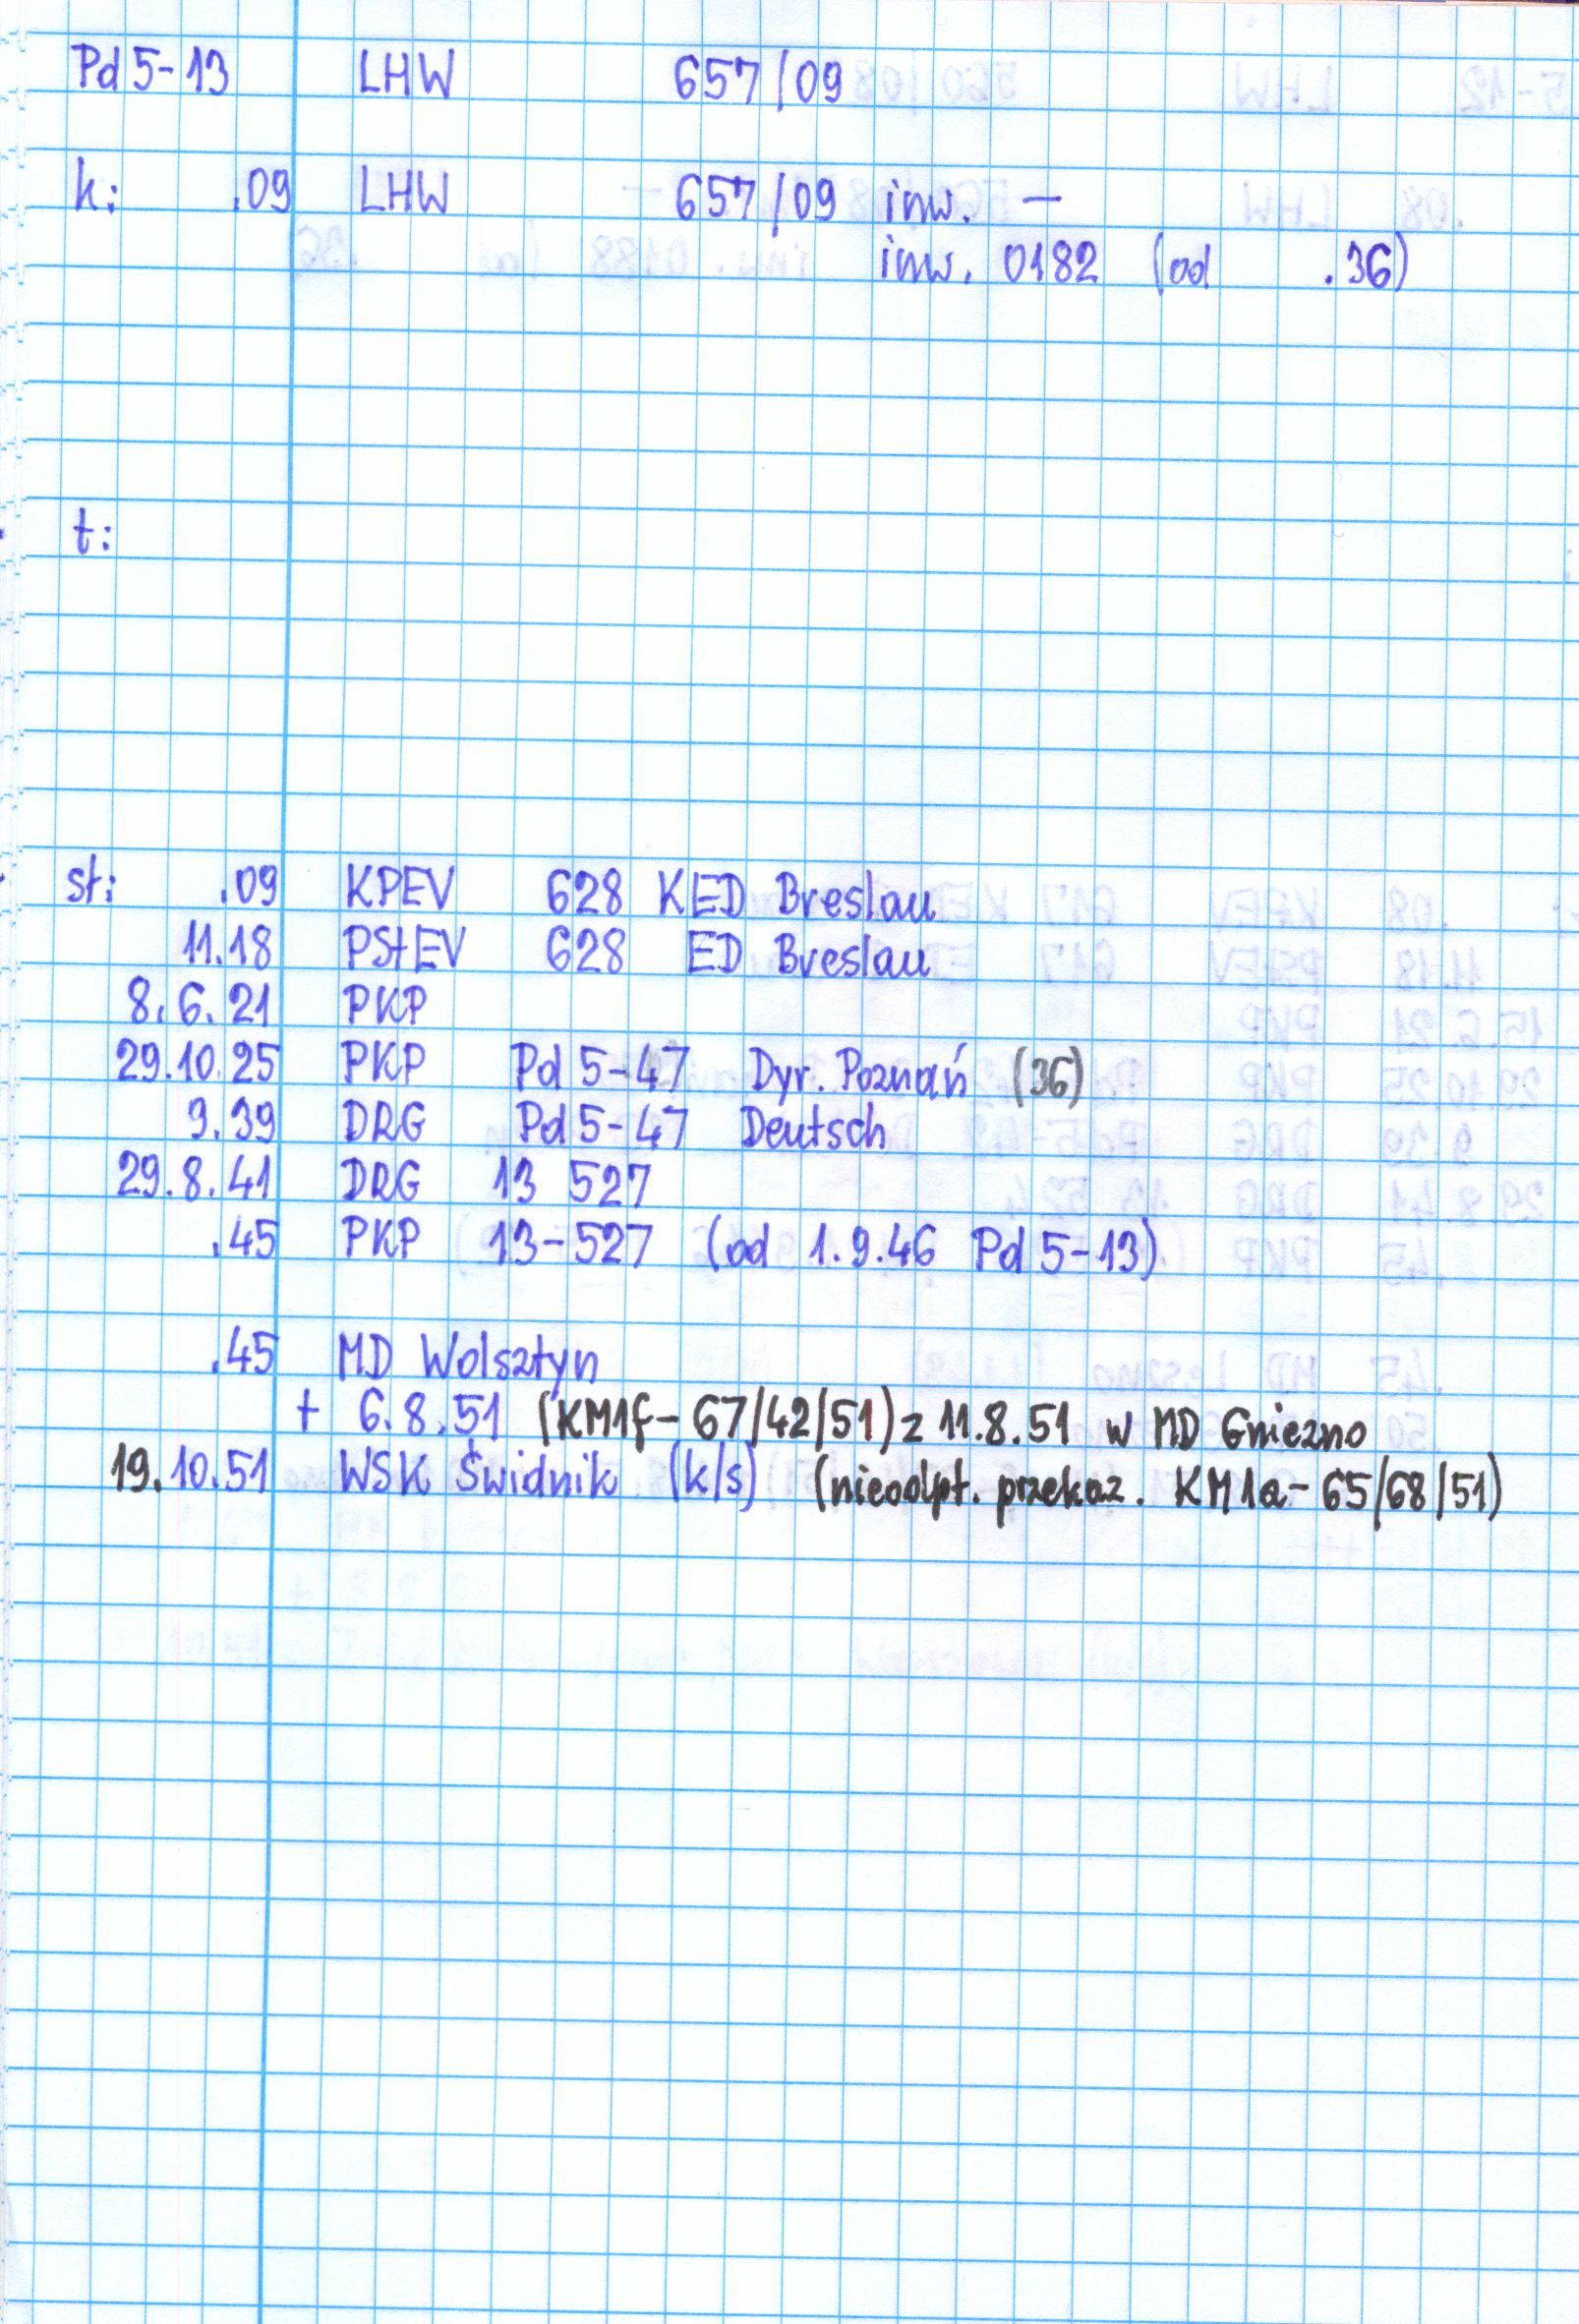 Pd 5-13 LHW 657/09
k: .09 LHW 657/09 inw. —
inw. 0182 (od .36)
t:
st: .09 KPEV 628 KED Breslau
11.18 PStEV 628 ED Breslau
8.6.21 PKP
29.10.25 PKP Pd 5-47 Dyr. Poznań (36)
9.39 DRG Pd 5-47 Deutsch
29.8.41 DRG 13 527
.45 PKP 13-527 (od 1.9.46 Pd 5-13)
.45 MD Wolsztyn
+ 6.8.51 (KM1f-67/42/51) z 11.8.51 w MD Gniezno
19.10.51 WSK Świdnik (k/s) (nieodpt. przekaz. KM1a-65/68/51)